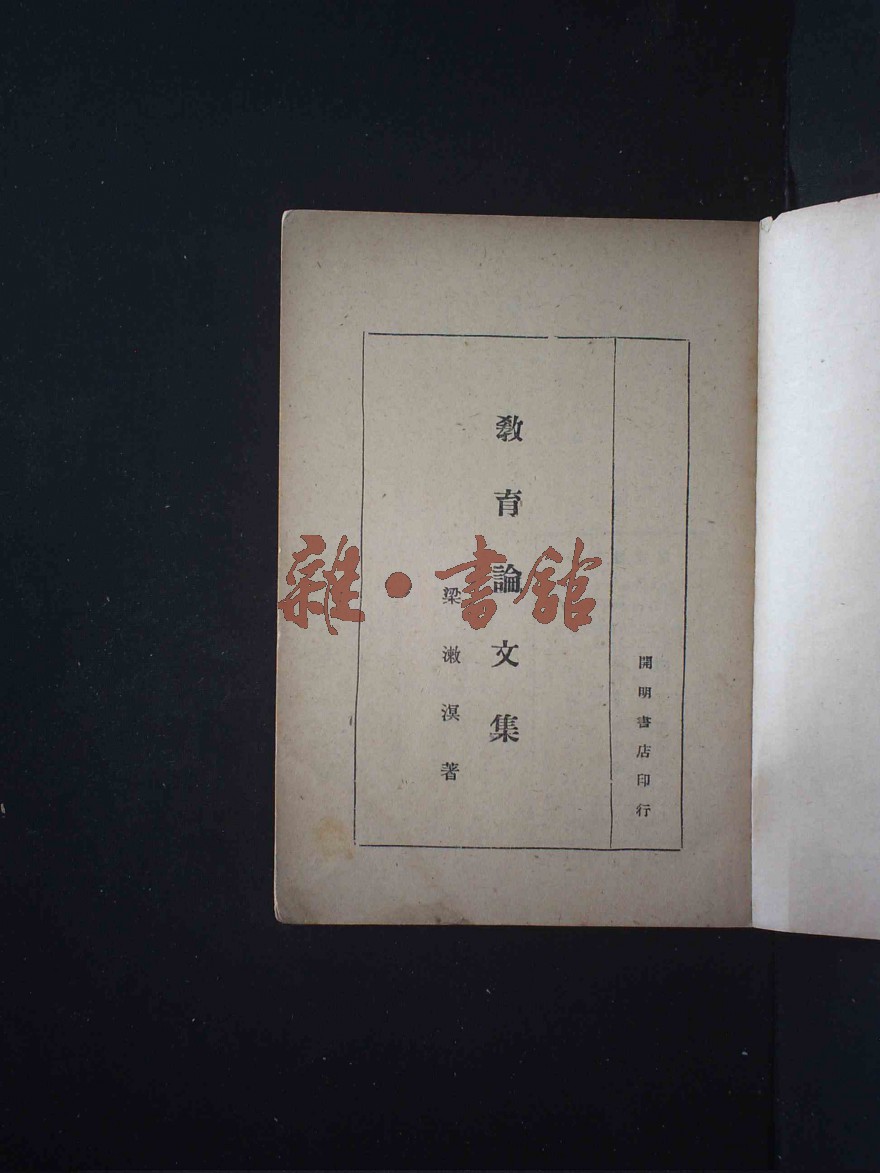 開明書店印行
教育論文集
梁漱溟著
雜·書館